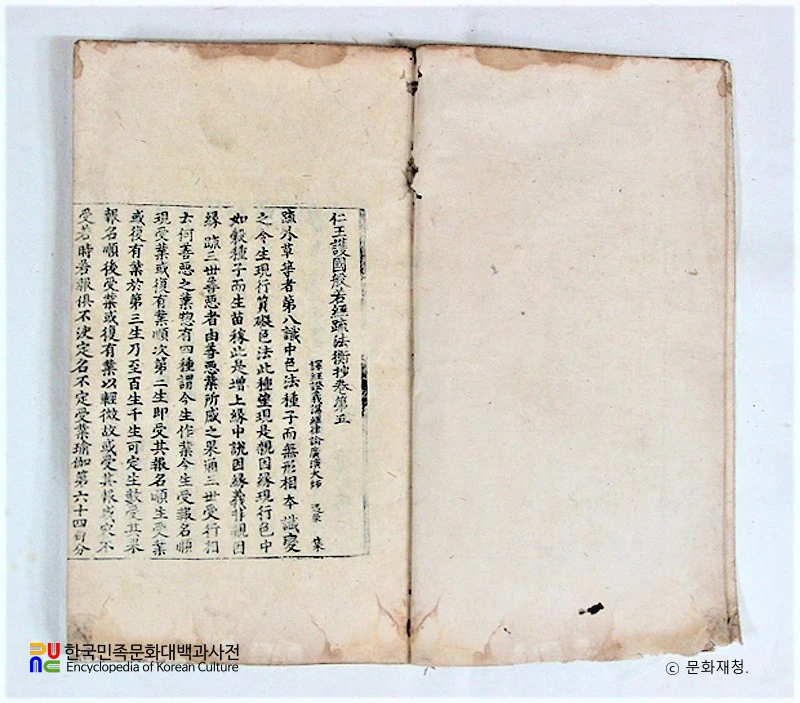 仁王護國般若經疏法衡抄卷第五
譯經證義講經律論廣演大師 遇榮 集
疏外草等者第八識中色法種子而無形相本識變
之今生現行質礙色法此種望現是親因緣現行色中
如穀種子而生苗稼此是增上緣中說因緣義非親因
緣 疏三世善惡者由善惡業所感之果通三世受行相
去何善惡之業惣有四種謂今生作業今生受報名順
現受業或復有業順次第二生即受其報名順生受業
或復有業於第三生乃至百生千生可定生數受其果
報名順後受業或復有業以輕微故或受其報或定不
受若時若報俱不決定名不定受業瑜伽第六十四自分
한국민족문화대백과사전
Encyclopedia of Korean Culture
ⓒ 문화재청.